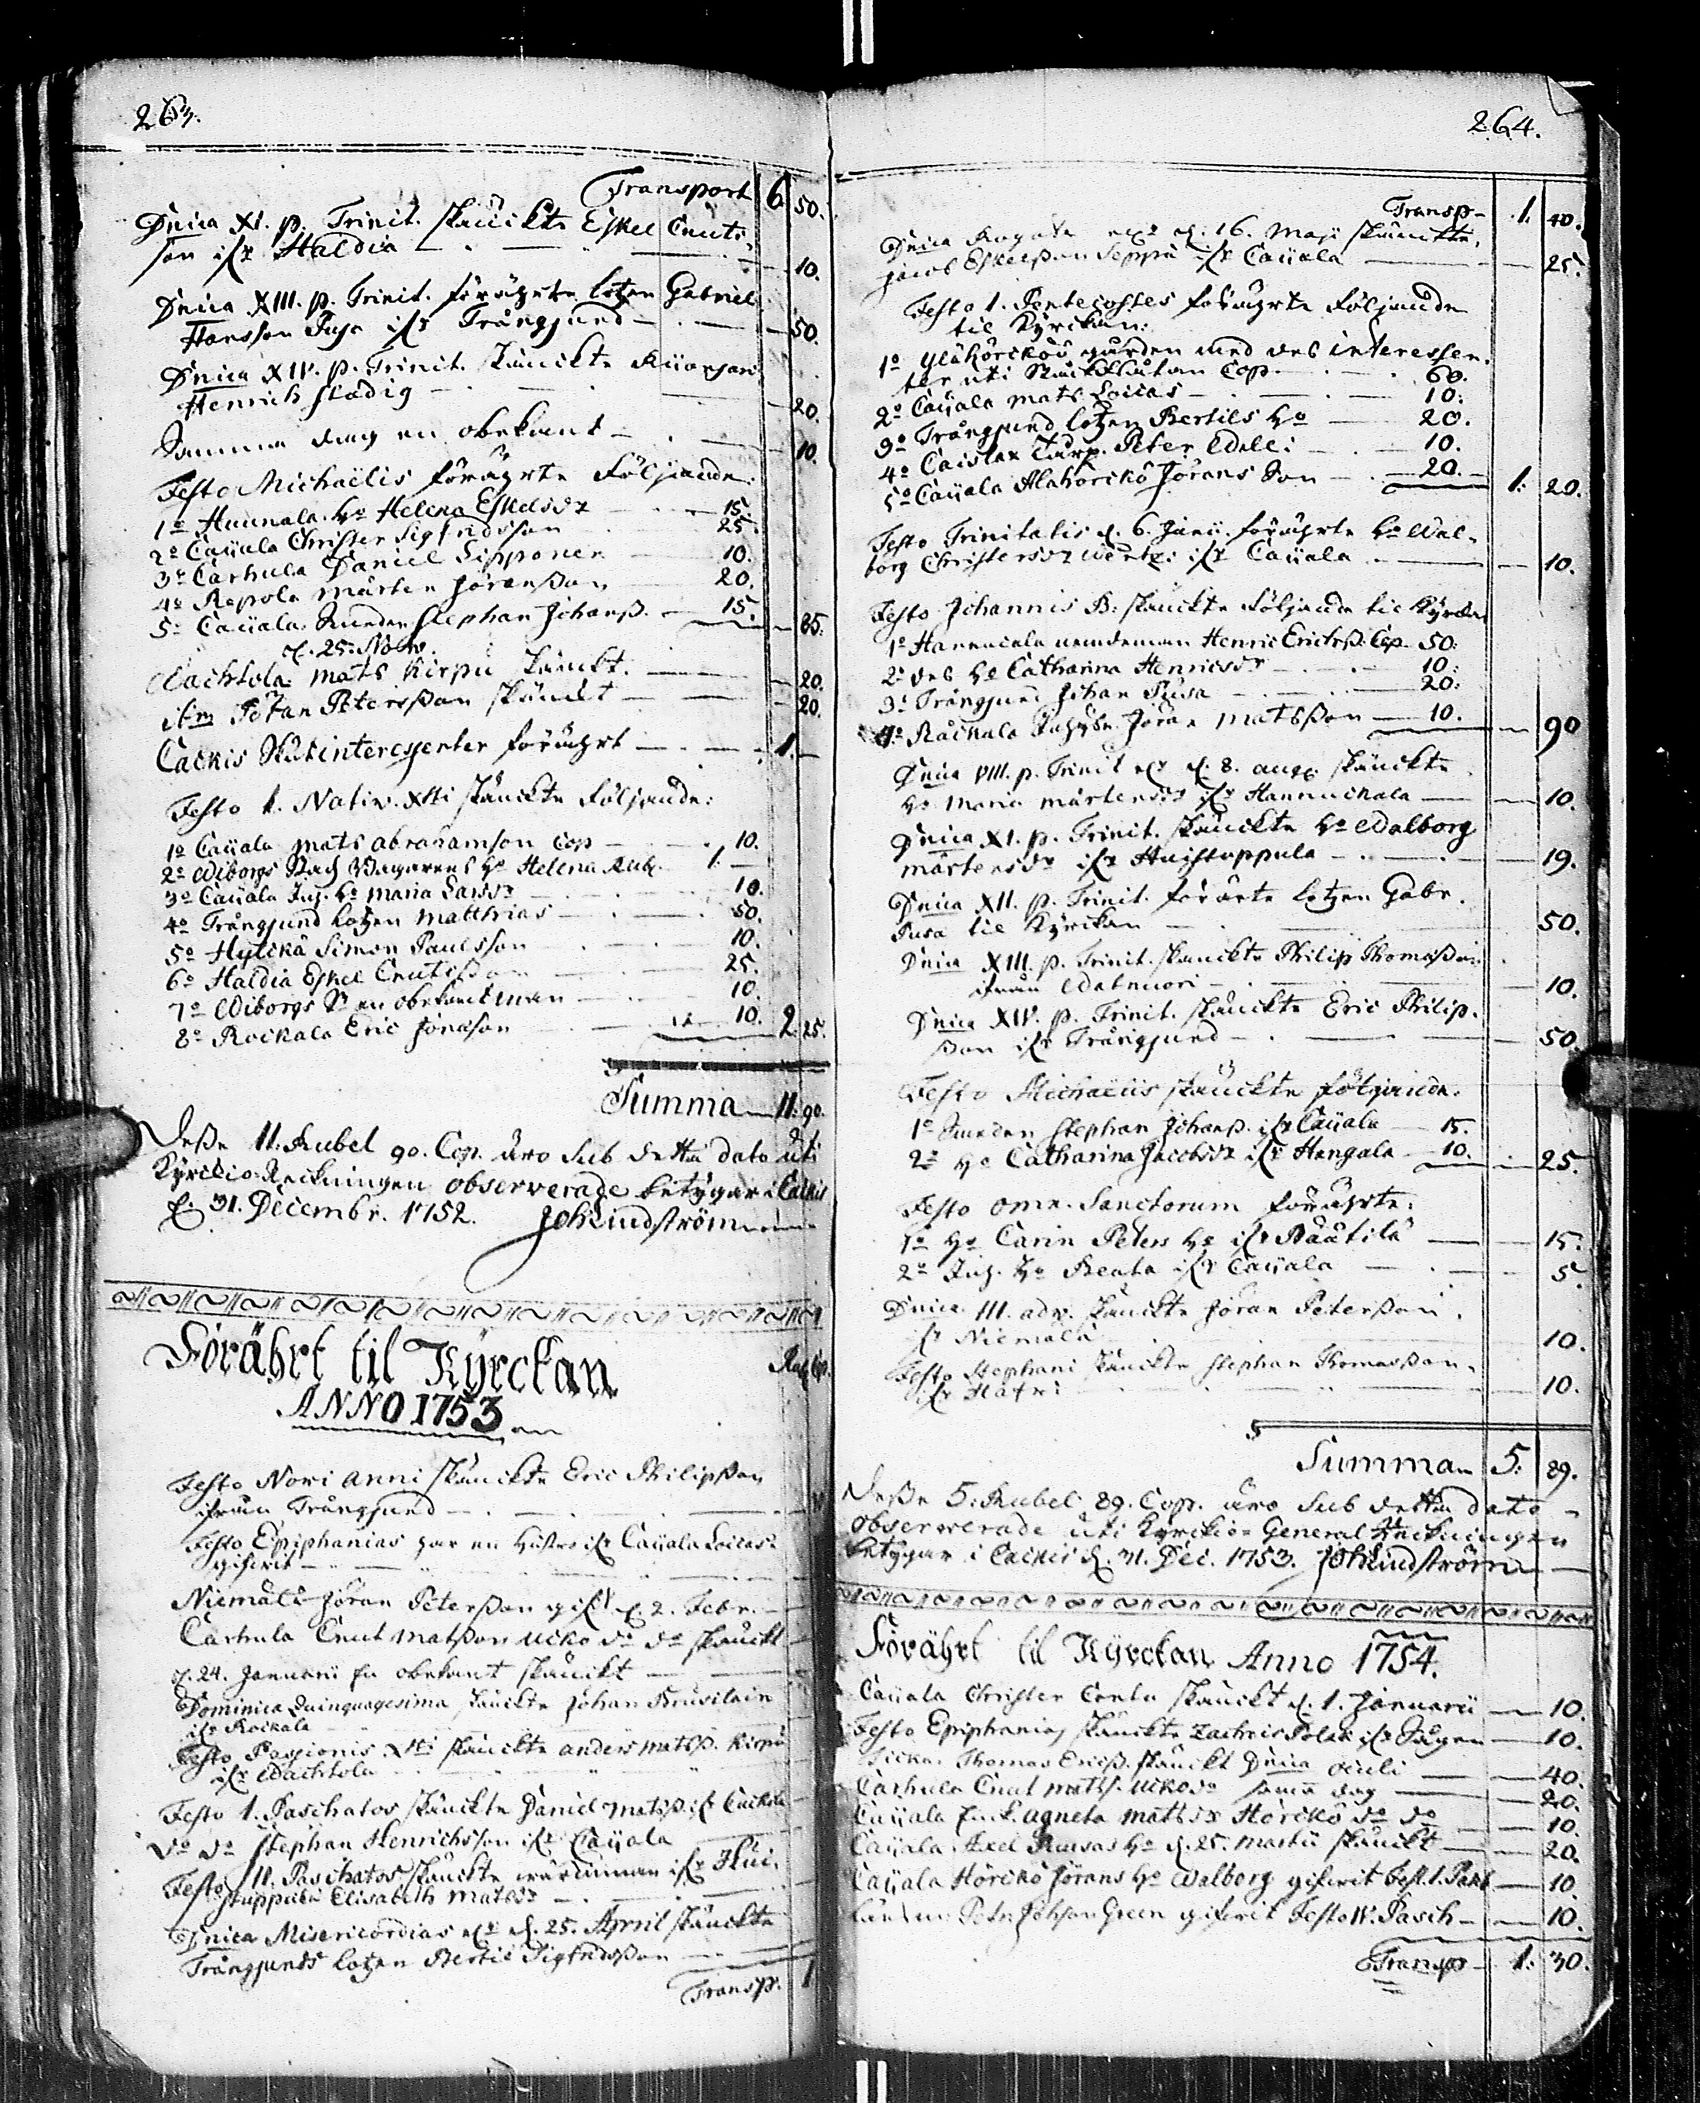 263.
Transport 6 50.
Dnica XI. p. Trinit. skänckte Eskel Cnuts-
son ifr. Haldia — 10.
Dnica XIII. p. Trinit. förährte lotzen Gabriel
Hansson Pusa ifr. Trångsund — 50.
Dnica XIV. p. Trinit. skänckte
Henrich Stadig — 20.
Samma dag en obekant — 10.
Festo Michaëlis förährte följande:
1o Hannala. Ho Helena Eskelsdr — 15.
2o Caijala Christer Sigfridsson 25.
3o Carhula Daniel Sipponen — 10.
4o Repola Mårten Jöransson 20.
5o Caijala. Smeden Stephan Johanss. — 15. — 85.
d. 25. Nov.
Wachtola Mats Kirpu skänckt. — 20.
itm Petersson skänckt — 20.
Cackis Skutinteressenter förährt — 1. —
Festo 1. Nativ. Xti skänckte följande:
1o Caijala Mats Abrahamson Cop — 10.
2o Wiborgs Ho Helena Rub. 1. —
3o Caijala Inh. Ho Maria Larsdr — 10.
4o Trångsund lotzen Matthias — 50.
5o Hylickä Simon Paulsson — 10.
6o Haldia Eskel Cnutsson — 25.
7o Wiborgs en obekant man — 10.
8o Rockala Eric Jönsson — 10. 2. 25.
Summa — 11: 90.
Desse 11. Rubel 90. Cop. äro sub detta dato uti
Kyrckio-Räckningen observerade betygar i Cackis
d. 31. Decembr. 1752. Joh Lindström
Förährt til Kyrckan Rub. Cop.
ANNO 1753
Festo Novi Anni skänckte Eric Philipsson
ifrån Trångsund —
Festo Epiphanias har en hustru ifr. Caijala Loccas
gifwit —
Niemälä Jöran Petersson gift d. 2. Febr. —
Carhula Cnut Matsson Ucko do do skänckt
d. 24. Januarii en obekant skänckt —
Dominica Quinquagesima skänckte Johan
ifr. Rockala
Festo Passionis Xti skänckte Anders Matss. Kirpu
ifr. Wachtola
Festo 1. Paschatos skänckte Daniel Matss. ifr.
do do Stephan Henrichsson ifr. Caijala
Festo III. Paschatos skänckte ifr. Hui-
stuppula Elisabeth Matsdr —
Dnica Misericordias d. 25. April skänckte
Trångsunds lotzen Bertil Sigfridsson —
Transp. 1
264.
Transp — 1. 40.
Dnica Rogate d. 16. Maji skänckte,
Jacob Eskelsson Seppä ifr. Caijala — 25.
Festo 1. Pentecostes förährte följande
til Kyrckan:
1o gården med des interessen-
ter uti Cop. — 60.
2o Caijala Mats Loccas — 10.
3o Trångsund lotzen Bertils Ho — 20.
4o Caislax Peter — 10.
5o Caijala Alahörickö Jörans Son — 20. — 1. 20.
Festo Trinitatis d. 6. Junii förährte Ho Wal-
borg Christersdr ifr. Caijala — 10.
Festo Johannis B: skänckte följande til Kyrckan
1o Hannucala nemdeman Henric Ericss. Cop. 50:
2o des Ho Catharina Henricsdr — 10:
3o Trångsund Johan Pusa — 20:
4o Räickälä Jöran Matsson — 10. — 90
Dnica VIII. p. Trinit d. 8. aug. skänckte
Ho Maria Mårtensdr ifr. Hannuckala — 10.
Dnica XI. p. Trinit. skänckte Ho Walborg
Mårtensdr ifr. Huistuppula — 19.
Dnica XII. p. Trinit. förärte lotzen Gabr.
Pusa til Kyrckan — 50.
Dnica XIII. p. Trinit. skänckte Philip Thomasson
ifrån Watnuori — 10.
Dnica XIV. p. Trinit. skänckte Eric Philip-
sson ifr. Trångsund — 50.
Festo Michaelis skänckte följande.
1o Smeden Stephan Johanss. ifr. Caijala — 15.
2o Ho Catharina Jacobsdr ifr. Hangala — 10. — 25.
Festo Omn. Sanctorum förährte:
1o Ho Carin Peters Ho ifr. Näätilä — 15.
2o Inh. Ho Beata ifr. Caijala — 5.
Dnica III. adv. skänckte Jöran Petersson
ifr. Niemälä 10.
Festo Stephani skänckte Stephan Thomasson
ifr. Hätri 10.
Summa 5: 89.
Desse 5. Rubel 89. Cop. äro sub detta dato
observerade uti Kyrckio-General Räckningen
betygar i Cackis d. 31. Dec. 1753. Joh Lindström
Förährt til Kyrckan Anno 1754.
Caijala Christer Contu skänckt d. 1. Januarii — 10.
Festo Epiphanias skänckte Zachris Polak ifr. — 10.
Thomas Ericss. skänckt Dnica Oculi — 40.
Carhula Cnut Matss. Ucko do samma dag — 20.
Caijala Enck. Agneta Matsdr Hörckö do do — 10.
Caijala Axel Ho d. 25. Martii skänckt — 20.
Caijala Hörickö Jörans Ho Walborg gifwit Fest. 1. Pasch — 10.
Petr. Johson Green gifwit Festo IV. Pasch — 10.
Transp — 1: 30.